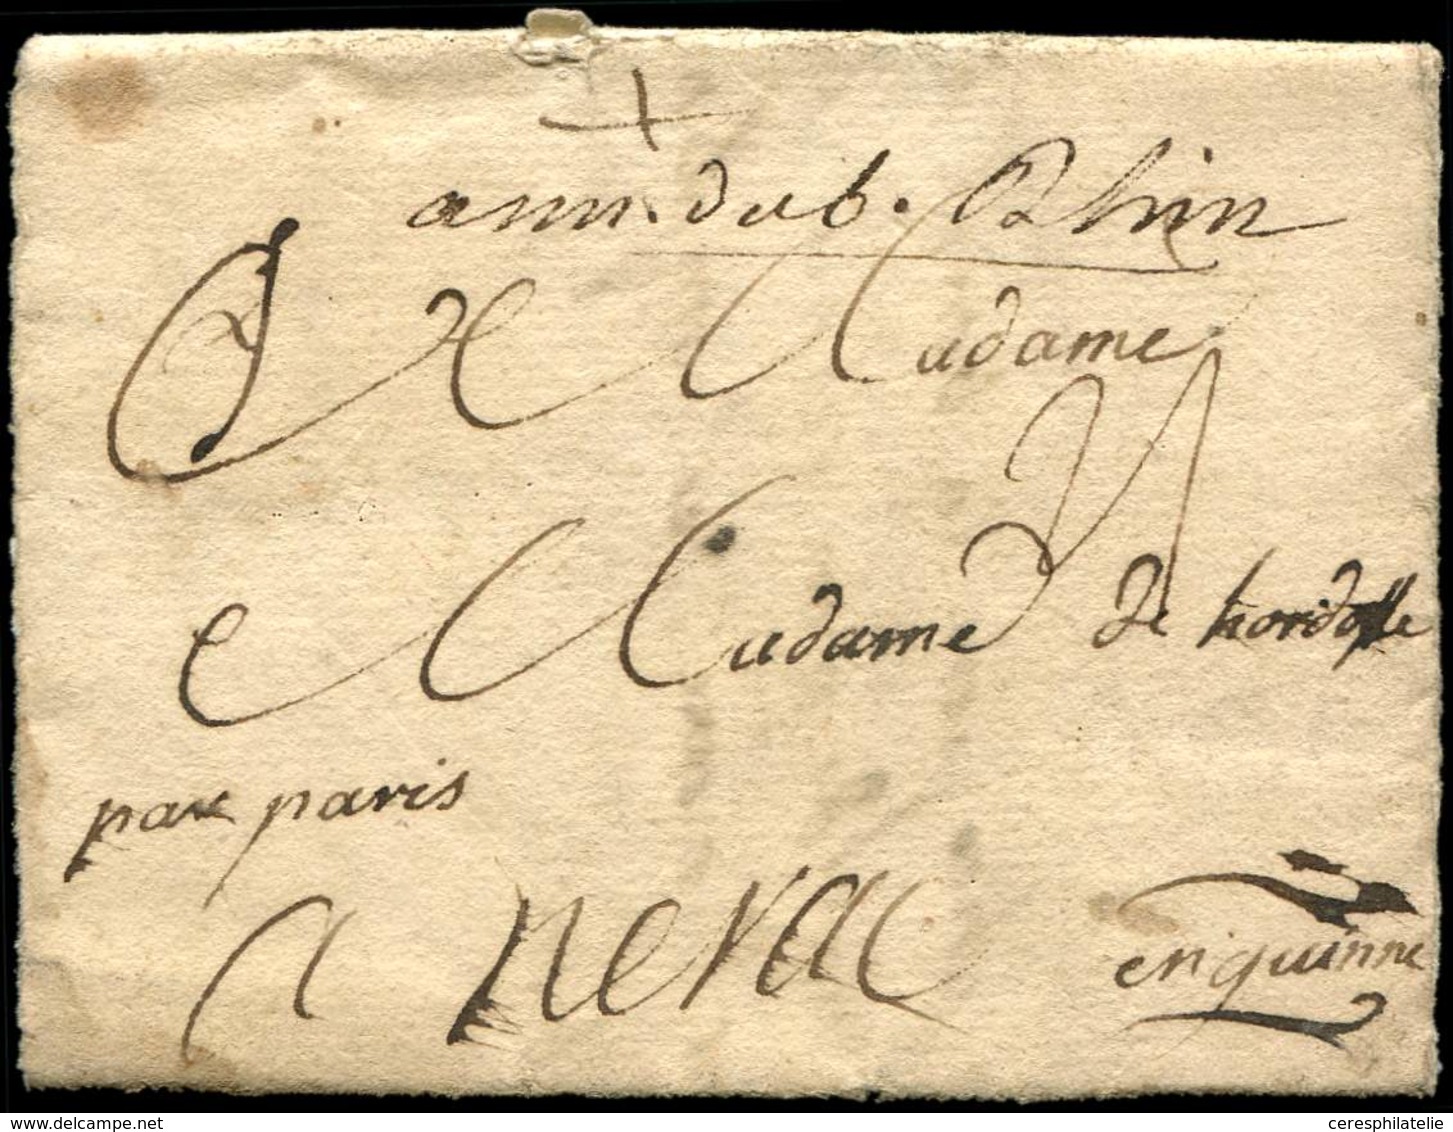 arm. du b. Rhin
A Madame
Madame de
par paris
a nerac en guinne
www.delcampe.net
ceresphilatelie